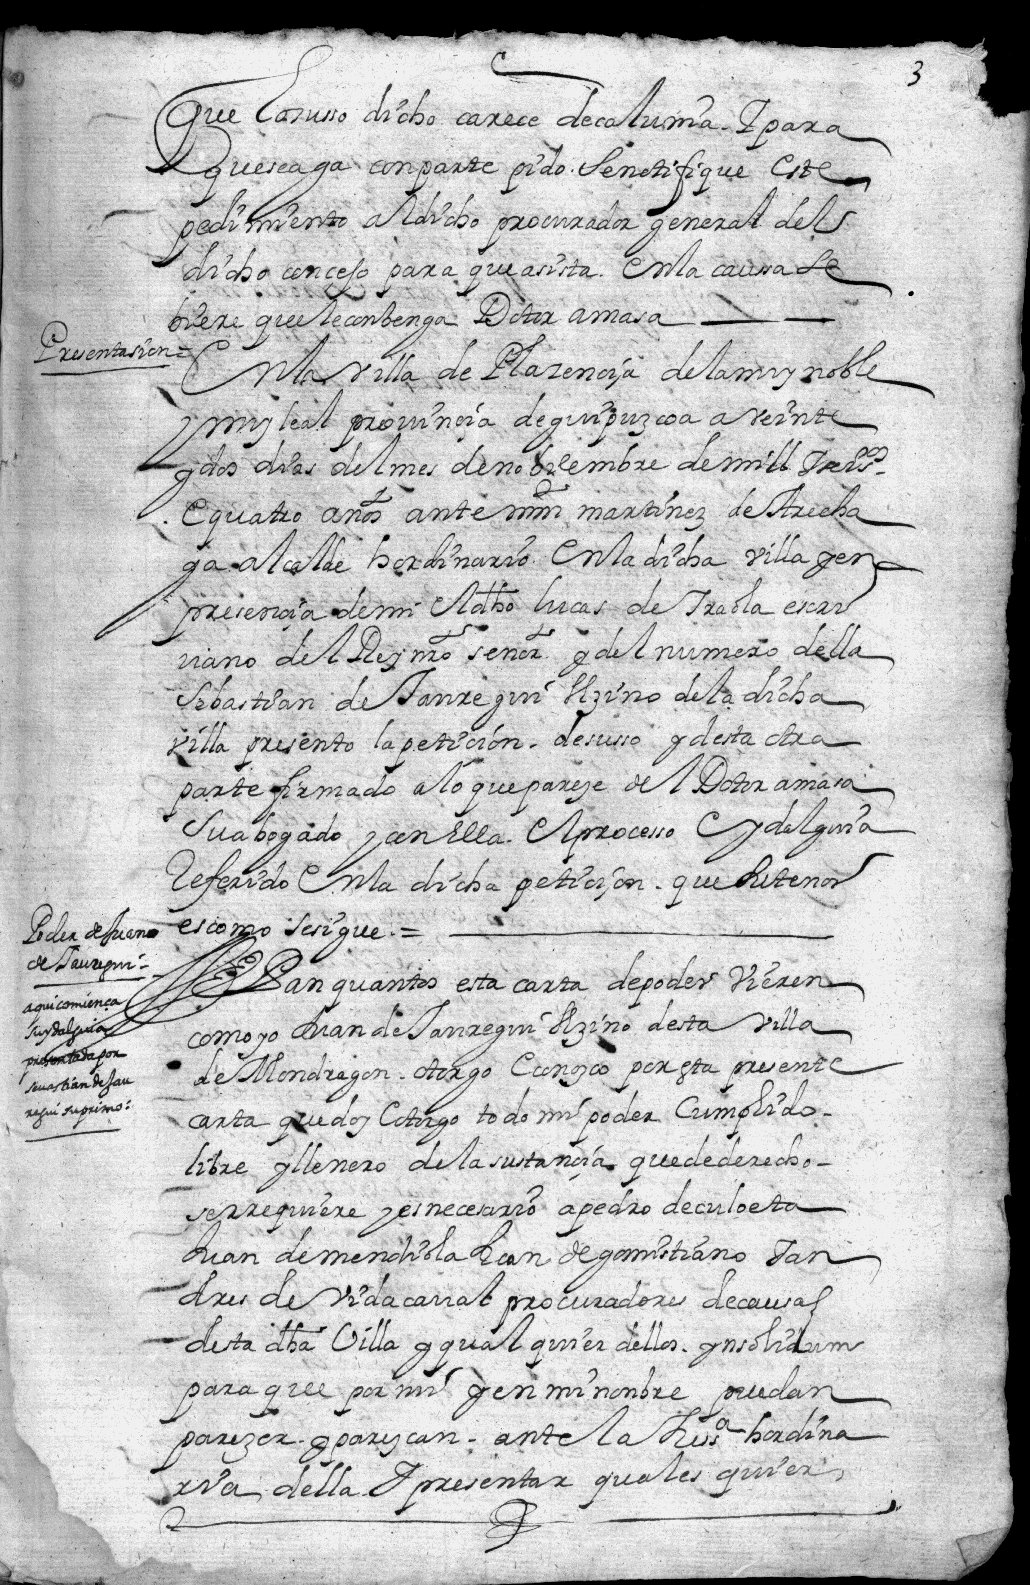 3
que lo susso dicho carece de calumnia. Y para
que se aga con parte pido. Se notifique este
pedimiento al dicho procurador general del
dicho concejo para que asista. En la caussa se
biere que le conbenga Dotor amasa
Presentasion =
En la villa de Plazencia de la muy noble
y muy leal provincia de guipuzcoa a veinte
y dos dias del mes de nobiembre de mill seisos
E quatro años ante mín martinez de Arecha
ga alcalde hordinario. En la dicha villa y en
presencia de mi El dho lucas de Iraola escri
uiano del Rey nro señor y del numero della
Sebastian de Jauregui Vzino de la dicha
villa presento la peticion. desusso y desta otra
parte firmado a lo que pareze del Dotor amasa
Su abogado y con Ella. El processo E ydalguia
Referido En la dicha peticion. que su tenor
es como se sigue. =
Poder de Juan
de Jauregui =
aqui comiença
su ydalguia
presentada por
sevastian de Jau
regui su primo:
Sepan quantos esta carta de poder Vieren
como yo Juan de Jauregui Vzino desta villa
de Mondragon. otorgo E conozco por esta presente
carta que doy E otorgo todo mi poder Cumplido
libre y llenero de la sustancia que de derecho
se rrequiere y es necesario a pedro de culoeta
Juan de mendiola Juan de gomistiano Y an
dres de Vidacarral procuradores de causas
desta dha Villa y qual quier dellos. ynsolidum
para que por mi y en mi nonbre puedan
parezer. y parezcan. ante la Jusa hordina
ria della. Y presentar quales quier